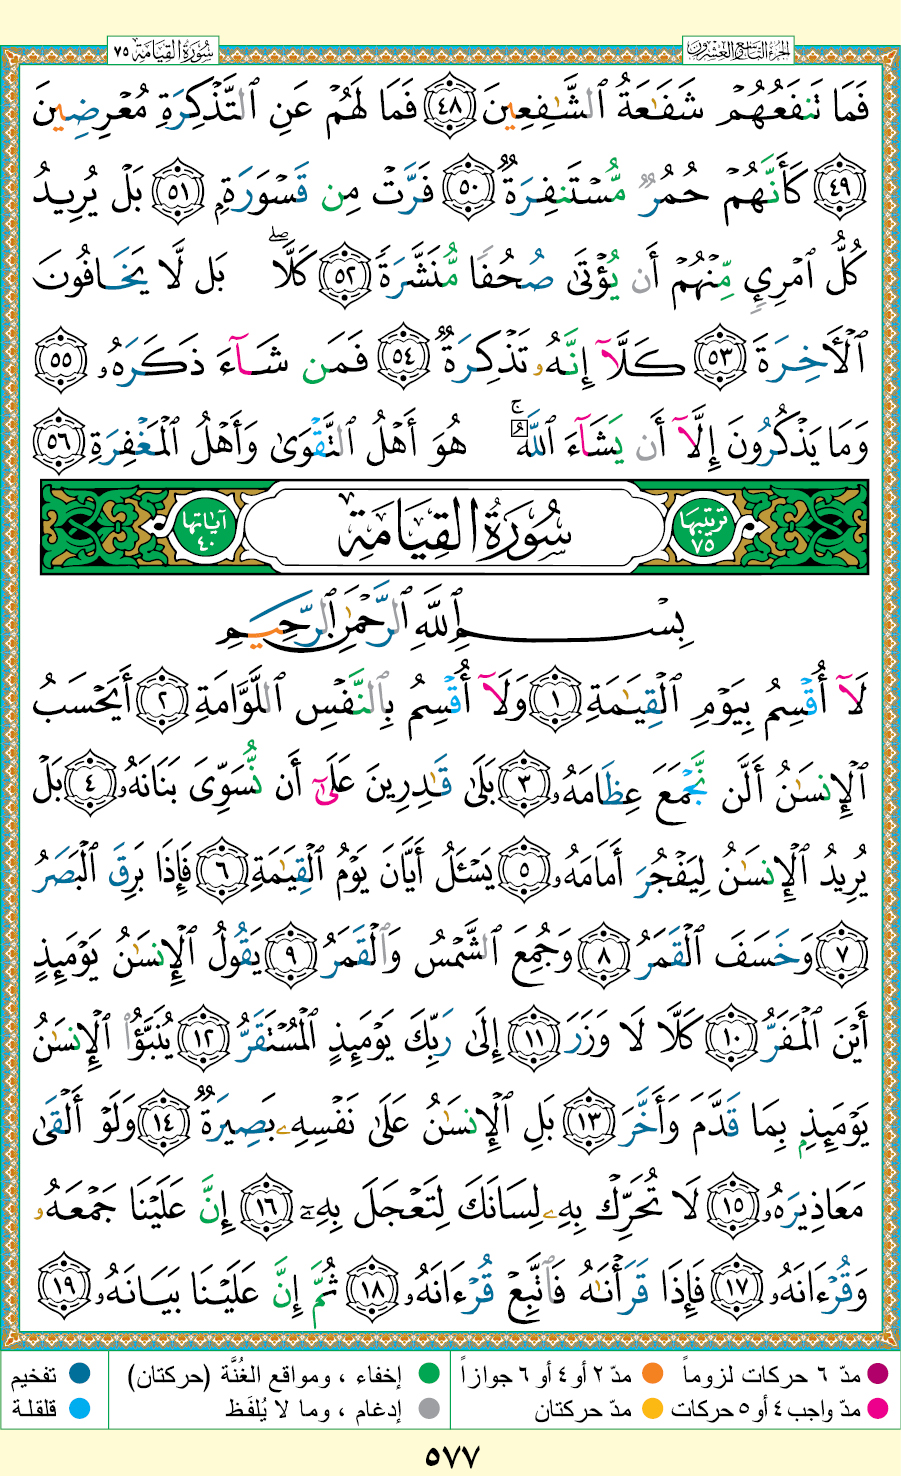 سُورَةُ القِيَامَة ٧٥
الجزء التاسع العشرون
فَمَا تَنفَعُهُمْ شَفَـٰعَةُ ٱلشَّـٰفِعِينَ ٤٨ فَمَا لَهُمْ عَنِ ٱلتَّذْكِرَةِ مُعْرِضِينَ
٤٩ كَأَنَّهُمْ حُمُرٌ مُّسْتَنفِرَةٌ ٥٠ فَرَّتْ مِن قَسْوَرَةٍۭ ٥١ بَلْ يُرِيدُ
كُلُّ ٱمْرِئٍ مِّنْهُمْ أَن يُؤْتَىٰ صُحُفًا مُّنَشَّرَةً ٥٢ كَلَّاۖ بَل لَّا يَخَافُونَ
ٱلْـَٔاخِرَةَ ٥٣ كَلَّآ إِنَّهُۥ تَذْكِرَةٌ ٥٤ فَمَن شَآءَ ذَكَرَهُۥ ٥٥
وَمَا يَذْكُرُونَ إِلَّآ أَن يَشَآءَ ٱللَّهُۚ هُوَ أَهْلُ ٱلتَّقْوَىٰ وَأَهْلُ ٱلْمَغْفِرَةِ ٥٦
ترتيبها ٧٥ سُورَةُ القِيَامَةِ آياتها ٤٠
بِسْمِ ٱللَّهِ ٱلرَّحْمَـٰنِ ٱلرَّحِيمِ
لَآ أُقْسِمُ بِيَوْمِ ٱلْقِيَـٰمَةِ ١ وَلَآ أُقْسِمُ بِٱلنَّفْسِ ٱللَّوَّامَةِ ٢ أَيَحْسَبُ
ٱلْإِنسَـٰنُ أَلَّن نَّجْمَعَ عِظَامَهُۥ ٣ بَلَىٰ قَـٰدِرِينَ عَلَىٰٓ أَن نُّسَوِّىَ بَنَانَهُۥ ٤ بَلْ
يُرِيدُ ٱلْإِنسَـٰنُ لِيَفْجُرَ أَمَامَهُۥ ٥ يَسْـَٔلُ أَيَّانَ يَوْمُ ٱلْقِيَـٰمَةِ ٦ فَإِذَا بَرِقَ ٱلْبَصَرُ
٧ وَخَسَفَ ٱلْقَمَرُ ٨ وَجُمِعَ ٱلشَّمْسُ وَٱلْقَمَرُ ٩ يَقُولُ ٱلْإِنسَـٰنُ يَوْمَئِذٍ
أَيْنَ ٱلْمَفَرُّ ١٠ كَلَّا لَا وَزَرَ ١١ إِلَىٰ رَبِّكَ يَوْمَئِذٍ ٱلْمُسْتَقَرُّ ١٢ يُنَبَّؤُا۟ ٱلْإِنسَـٰنُ
يَوْمَئِذٍۭ بِمَا قَدَّمَ وَأَخَّرَ ١٣ بَلِ ٱلْإِنسَـٰنُ عَلَىٰ نَفْسِهِۦ بَصِيرَةٌ ١٤ وَلَوْ أَلْقَىٰ
مَعَاذِيرَهُۥ ١٥ لَا تُحَرِّكْ بِهِۦ لِسَانَكَ لِتَعْجَلَ بِهِۦٓ ١٦ إِنَّ عَلَيْنَا جَمْعَهُۥ
وَقُرْءَانَهُۥ ١٧ فَإِذَا قَرَأْنَـٰهُ فَٱتَّبِعْ قُرْءَانَهُۥ ١٨ ثُمَّ إِنَّ عَلَيْنَا بَيَانَهُۥ ١٩
مدّ ٦ حركات لزوماً مدّ ٢ أو ٤ أو ٦ جوازاً إخفاء ، ومواقع الغُنَّة (حركتان) تفخيم
مدّ واجب ٤ أو ٥ حركات مدّ حركتان إدغام ، وما لا يُلفَظ قلقلة
٥٧٧